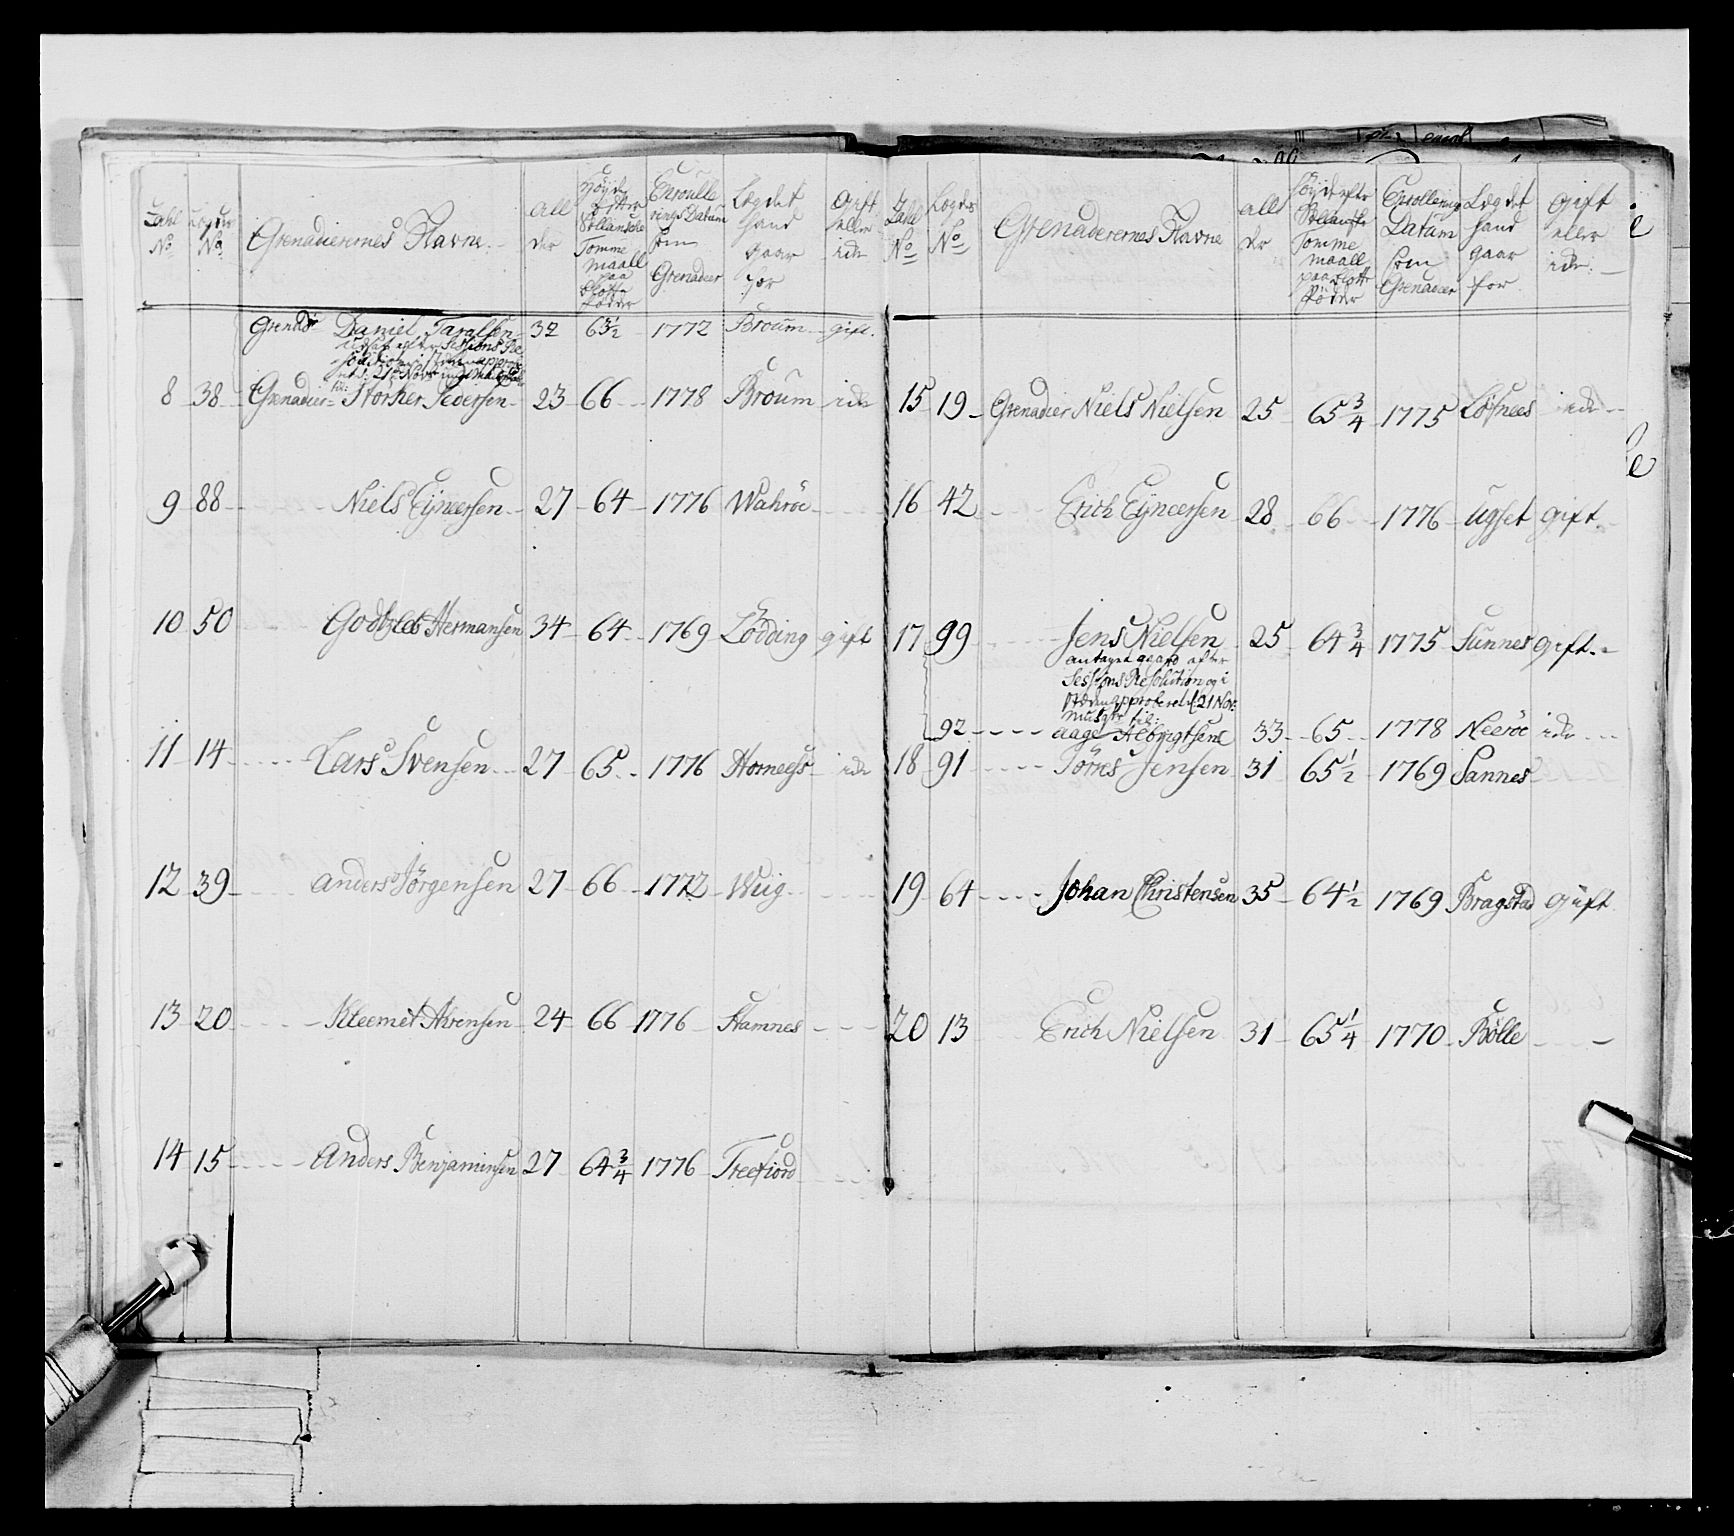 Tahl No
Lægdes No
Grenadierernes Navne
All der
Høyde efter Hollandske Tomme maall paa blotte Fødder
Enroullerings Datum som Grenadeer
Lægdet hand gaar for
Gift eller ide
Grend: Daniel Taralsen 32 63½ 1772 Broum gift.
Udsat efter Sessions Re
8 38 Grenadier Storker Pedersen 23 66 1778 Broum ide
9 88 Niels Eynersen 27 64 1776 Wahröe
10 50 Godtzlob Hermansen 34 64 1769 Lödding gift
11 14 Lars Svensen 27 65 1776 Horneess ide
12 39 Anders Jörgensen 27 66 1772 Wiig
13 20 Kleemet Arensen 24 66 1776 Stamnes
14 15 Anders Benjaminsen 27 64¾ 1776 Treefiord
Tahl No
Lægdes No
Grenaderernes Navne
alls der
Høyde efter Hollanske Tomme maall paa blotte Födder
Enrollerings Datum som Grenadeer
Lægdet hand gaar for
Gift eller ide
15 19 Grenadier Niels Nielsen 25 65¾ 1775 Löfnees ide
16 42 Erich Eyneersen 28 66 1776 Ugset Gift
17 99 Jens Nielsen 25 64¾ 1775 Sunnes gift.
antaget efter
Sessions Resolution og i
Steden approberet d: 21 Nov:
til:
92 Aage Albrigtsen 33 65 1778 Neeröe ide
18 91 Törres Jensen 31 65½ 1769 Sannes
19 64 Johan Christensen 35 64½ 1769 Bragstad Gift
20 13 Erich Nielsen 31 65¼ 1770 Bölle